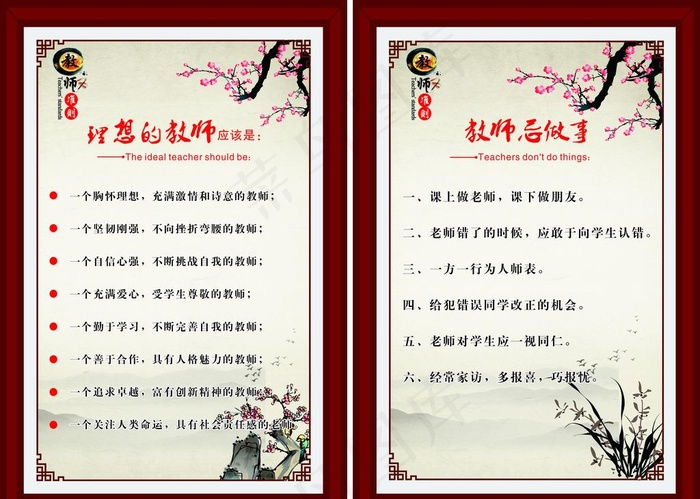 教师准则
Teachers' standards
理想的教师应该是：
The ideal teacher should be:
一个胸怀理想，充满激情和诗意的教师；
一个坚韧刚强，不向挫折弯腰的教师；
一个自信心强，不断挑战自我的教师；
一个充满爱心，受学生尊敬的教师；
一个勤于学习，不断完善自我的教师；
一个善于合作，具有人格魅力的教师；
一个追求卓越，富有创新精神的教师；
一个关注人类命运，具有社会责任感的老师
教师准则
Teachers' standards
教师忌做事
Teachers don't do things:
一、课上做老师，课下做朋友。
二、老师错了的时候，应敢于向学生认错。
三、一方一行为人师表。
四、给犯错误同学改正的机会。
五、老师对学生应一视同仁。
六、经常家访，多报喜，巧报忧。